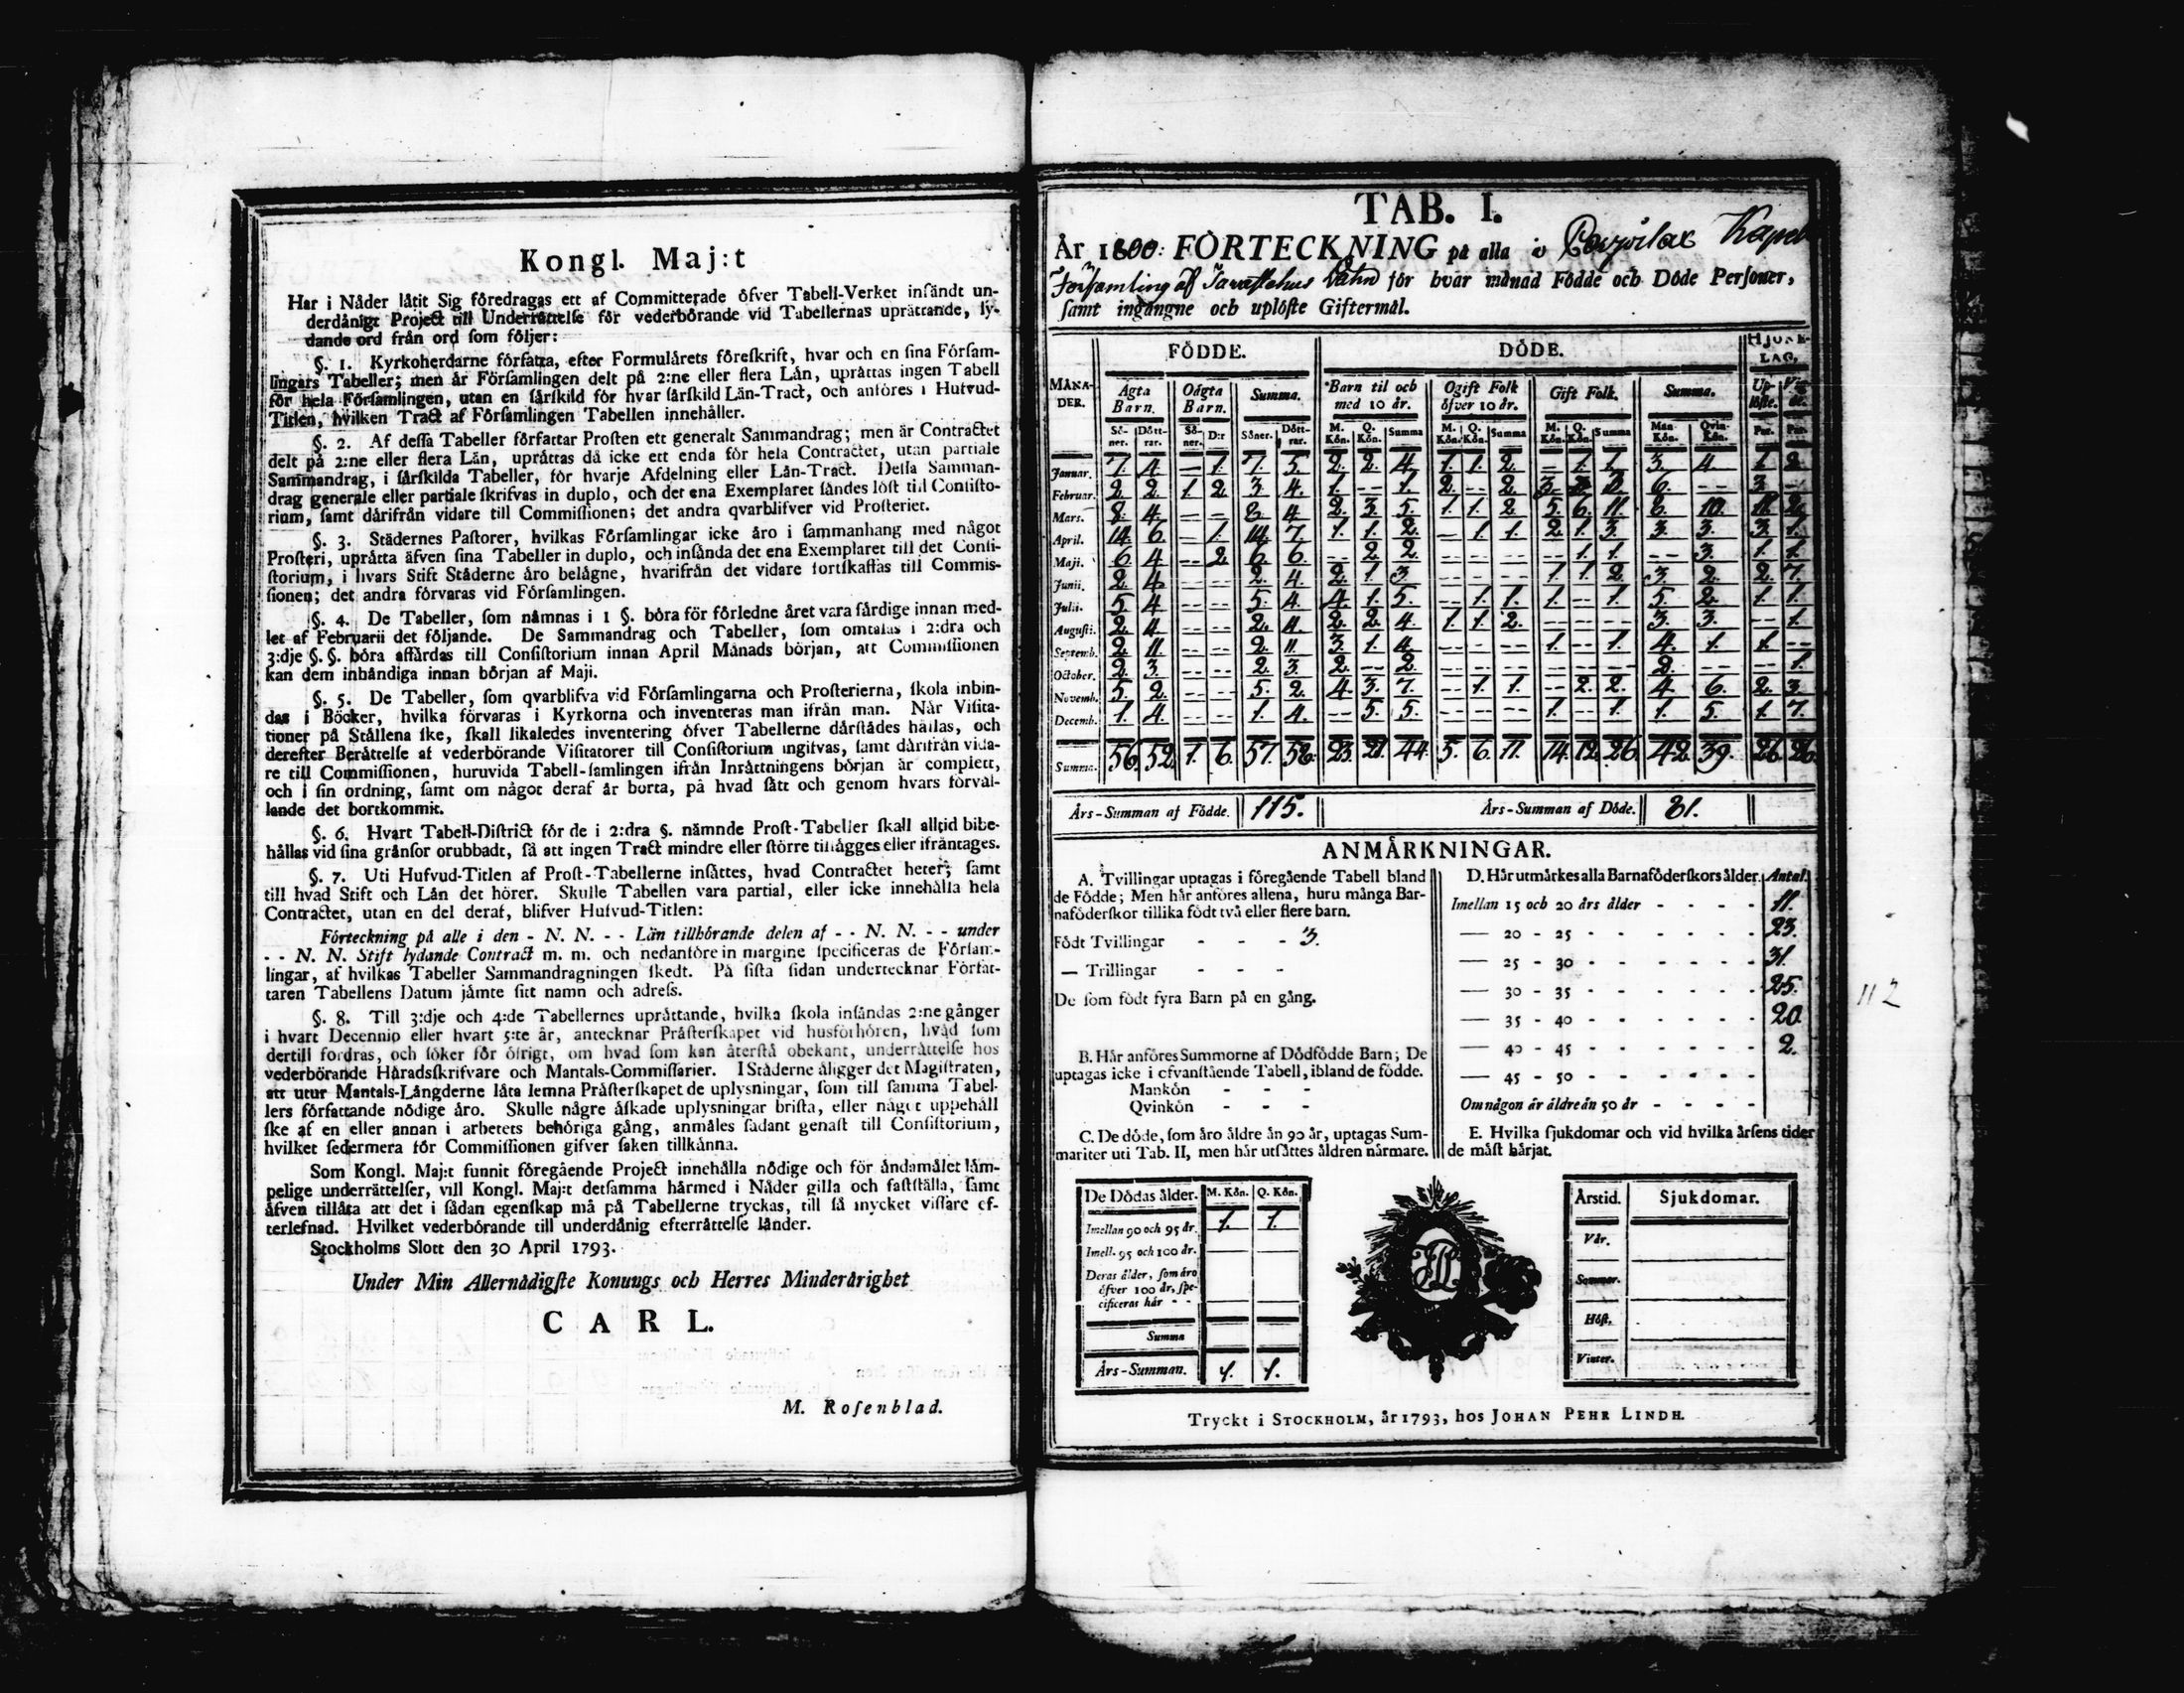 Kongl. Maj:t
Har i Nåder låtit Sig föredragas ett af Committerade öfver Tabell-Verket inſändt un-
derdånigt Project till Underrättelſe för vederbörande vid Tabellernas uprättande, ly-
dande ord från ord ſom följer:
§. 1. Kyrkoherdarne författa, efter Formulårets föreſkrift, hvar och en ſina Förſam-
lingars Tabeller; men är Förſamlingen delt på 2:ne eller flera Län, uprättas ingen Tabell
för hela Förſamlingen, utan en ſärſkild för hvar ſärſkild Län-Tract, och anföres i Hufvud-
Titlen, hvilken Tract af Förſamlingen Tabellen innehåller.
§. 2. Af deſſa Tabeller författar Proſten ett generalt Sammandrag; men är Contractet
delt på 2:ne eller flera Län, uprättas då icke ett enda för hela Contractet, utan partiale
Sammandrag, i ſärſkilda Tabeller, för hvarje Afdelning eller Län-Tract. Deſſa Samman-
drag generale eller partiale ſkrifvas in duplo, och det ena Exemplaret ſändes löſt till Conſiſto-
rium, ſamt därifrån vidare till Commiſſionen; det andra qvarblifver vid Proſteriet.
§. 3. Städernes Paſtorer, hvilkas Förſamlingar icke äro i ſammanhang med något
Proſteri, uprätta äfven ſina Tabeller in duplo, och inſända det ena Exemplaret till det Conſi-
ſtorium, i hvars Stift Städerne äro belägne, hvarifrån det vidare fortſkaffas till Commis-
ſionen; det andra förvaras vid Förſamlingen.
§. 4. De Tabeller, ſom nämnas i 1 §. böra för förledne året vara färdige innan med-
let af Februarii det följande. De Sammandrag och Tabeller, ſom omtalas i 2:dra och
3:dje §. §. böra affärdas till Conſiſtorium innan April Månads början, att Commiſſionen
kan dem inhändiga innan början af Maji.
§. 5. De Tabeller, ſom qvarblifva vid Förſamlingarna och Proſterierna, ſkola inbin-
das i Böcker, hvilka förvaras i Kyrkorna och inventeras man ifrån man. När Viſita-
tioner på Stållena ſke, ſkall likaledes inventering öfver Tabellerne därſtådes hållas, och
derefter Berättelſe af vederbörande Viſitatorer till Conſiſtorium ingifvas, ſamt därifrån vida-
re till Commiſſionen, huruvida Tabell-ſamlingen ifrån Inrättningens början är complett,
och i ſin ordning, ſamt om något deraf är borta, på hvad ſätt och genom hvars förval-
lande det bortkommit.
§. 6. Hvart Tabell-Diſtrict för de i 2:dra §. nämnde Proſt-Tabeller ſkall alltid bibe-
hållas vid ſina gränſor orubbadt, ſå att ingen Tract mindre eller ſtörre tillägges eller ifråntages.
§. 7. Uti Hufvud-Titlen af Proſt-Tabellerne inſättes, hvad Contractet heter; ſamt
till hvad Stift och Län det hörer. Skulle Tabellen vara partial, eller icke innehålla hela
Contractet, utan en del deraf, blifver Hufvud-Titlen:
Förteckning på alle i den - N. N. - - Län tillhörande delen af - - N. N. - - under
- - N. N. Stift lydande Contract m. m. och nedanföre in margine ſpecificeras de Förſam-
lingar, af hvilkas Tabeller Sammandragningen ſkedt. På ſiſta ſidan undertecknar Förfat-
taren Tabellens Datum jämte ſitt namn och adreſs.
§. 8. Till 3:dje och 4:de Tabellernes uprättande, hvilka ſkola inſändas 2:ne gånger
i hvart Decennio eller hvart 5:te år, antecknar Präſterſkapet vid husförhören, hvad ſom
dertill fordras, och ſöker för öfrigt, om hvad ſom kan återſtå obekant, underrättelſe hos
vederbörande Häradsſkrifvare och Mantals-Commiſſarier. I Städerne åligger det Magiſtraten,
att utur Mantals-Längderne låta lemna Präſterſkapet de uplysningar, ſom till ſamma Tabel-
lers författande nödige äro. Skulle någre åſkade uplysningar briſta, eller något uppehåll
ſke af en eller annan i arbetets behöriga gång, anmäles ſådant genaſt till Conſiſtorium,
hvilket ſedermera för Commiſſionen gifver ſaken tillkänna.
Som Kongl. Maj:t funnit föregående Project innehålla nödige och för ändamålet läm-
pelige underrättelſer, vill Kongl. Maj:t detſamma härmed i Nåder gilla och faſtſtälla, ſamt
äfven tillåta att det i ſådan egenſkap må på Tabellerne tryckas, till ſå mycket viſſare ef-
terlefnad. Hvilket vederbörande till underdånig efterrättelſe länder.
Stockholms Slott den 30 April 1793.
Under Min Allernådigſte Konungs och Herres Minderårighet
CARL.
M. Roſenblad.
TAB. I.
År 1800: FÖRTECKNING på alla i Kapell
Förſamling af Tavaſtehus Lähn för hvar månad Födde och Döde Perſoner,
ſamt ingångne och uplöſte Giftermål.
FÖDDE. DÖDE. HJONE-LAG.
MÅNA-DER. Ägta Barn. Oägta Barn. Summa. Barn til och med 10 år. Ogift Folk öfver 10 år. Gift Folk. Summa. Up-löſte. Vig-de.
Sö-ner. Dött-rar. Sö-ner. D:r Söner. Dött-rar. M. Kön. Q. Kön. Summa M. Kön. Q. Kön. Summa M. Kön. Q. Kön. Summa Man-Kön. Qvin-Kön. Par. Par.
Januar. 7. 4. — 1. 7. 5. 2. 2. 4. 1. 1. 2. — 1. 1. 3. 4. 1. 2.
Februar. 2. 2. 1. 2. 3. 4. 1. -- 1. 2. -- 2. 3. 3. 6. -- 3. --
Mars. 8. 4. -- -- 8. 4. 2. 3. 5. 1. 1. 2. 5. 6. 11. 8. 10. 11. 2.
April. 14. 6. -- 1. 14. 7. 1. 1. 2. -- 1. 1. 2. 1. 3. 3. 3. 3. 1.
Maji. 6. 4. -- 2. 6. 6. -- 2. 2. -- -- -- -- 1. 1. -- 3. 1. 1.
Junii. 2. 4. -- -- 2. 4. 2. 1. 3. -- -- -- 1. 1. 2. 3. 2. 2. 7.
Julii. 5. 4. -- -- 5. 4. 4. 1. 5. -- 1. 1. 1. -- 1. 5. 2. 1. 1.
Auguſti. 2. 4. -- -- 2. 4. 2. 2. 4. 1. 1. 2. -- -- -- 3. 3. -- 1.
Septemb. 2. 11. -- -- 2. 11. 3. 1. 4. -- -- -- 1. -- 1. 4. 1. 1. --
October. 2. 3. -- -- 2. 3. 2. -- 2. -- -- -- -- -- -- 2. -- -- 1.
Novemb. 5. 2. -- -- 5. 2. 4. 3. 7. -- 1. 1. -- 2. 2. 4. 6. 2. 3.
Decemb. 1. 4. -- -- 1. 4. -- 5. 5. -- -- -- 1. -- 1. 1. 5. 1. 7.
Summa. 56. 52. 1. 6. 57. 58. 23. 21. 44. 5. 6. 11. 14. 12. 26. 42. 39. 26. 26.
Års-Summan af Födde. 115. Års-Summan af Döde. 81.
ANMÄRKNINGAR.
A. Tvillingar uptagas i föregående Tabell bland
de Födde; Men här anföres allena, huru många Bar-
naföderſkor tillika födt två eller flere barn.
Födt Tvillingar - - - 3.
— Trillingar - - -
De ſom födt fyra Barn på en gång.
B. Här anföres Summorne af Dödfödde Barn; De
uptagas icke i ofvanſtående Tabell, ibland de födde.
Mankön - - -
Qvinkön - - -
C. De döde, ſom äro äldre än 90 år, uptagas Sum-
mariter uti Tab. II, men här utſättes åldren närmare.
D. Här utmärkes alla Barnaföderſkors ålder. Antal.
Imellan 15 och 20 års ålder - - - - 11.
— 20 - 25 - - - - - 23.
— 25 - 30 - - - - - 31.
— 30 - 35 - - - - - 25.
— 35 - 40 - - - - - 20.
— 40 - 45 - - - - - 2.
— 45 - 50 - - - - -
Om någon är äldre än 50 år - - - -
E. Hvilka ſjukdomar och vid hvilka årſens tider
de måſt härjat.
112
De Dödas ålder. M. Kön. Q. Kön.
Imellan 90 och 95 år. 1. 1.
Imell. 95 och 100 år.
Deras ålder, ſom äro
öfver 100 år, ſpe-
cificeras här - -
Summa
Års-Summan. 1. 1.
Årstid. Sjukdomar.
Vår.
Sommar.
Höſt.
Vinter.
Tryckt i STOCKHOLM, år 1793, hos JOHAN PEHR LINDH.